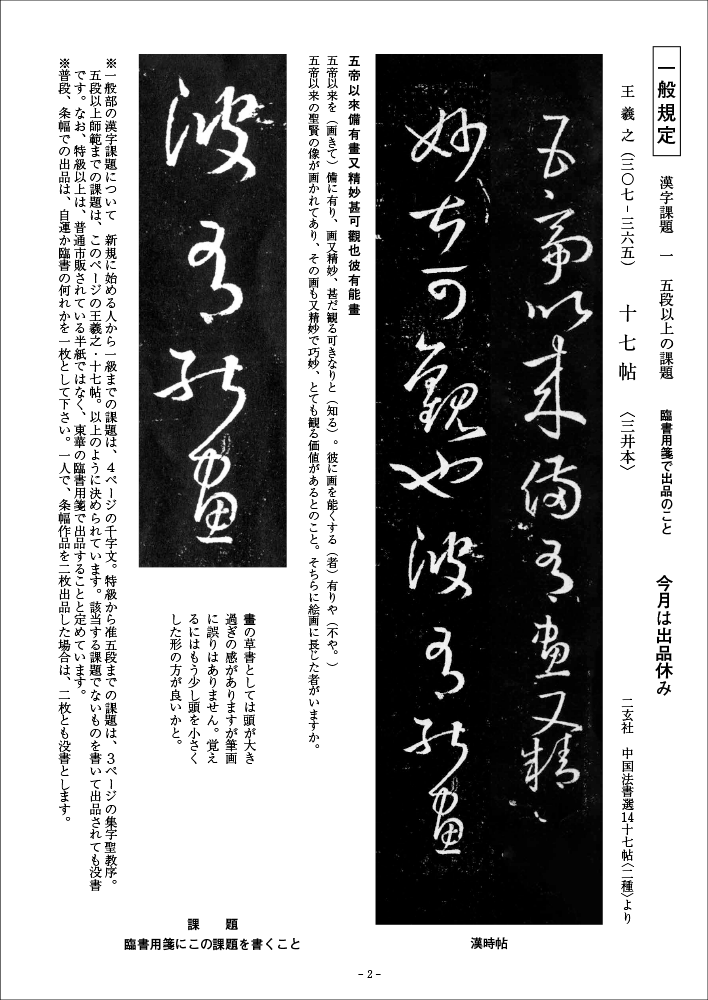 一般規定　漢字課題　一　五段以上の課題　臨書用箋で出品のこと　今月は出品休み
王羲之（三〇七-三六五）　十七帖　〈三井本〉　二玄社　中国法書選14十七帖〈二種〉より
五帝以来備有畫又精
妙甚可觀也彼有能畫
漢時帖
五帝以來備有畫又精妙甚可觀也彼有能畫
五帝以来を（画きて）備に有り、画又精妙、甚だ観る可きなりと（知る）。彼に画を能くする（者）有りや（不や。）
五帝以来の聖賢の像が画かれてあり、その画も又精妙で巧妙、とても観る価値があるとのこと。そちらに絵画に長じた者がいますか。
彼有能畫
畫の草書としては頭が大き
過ぎの感がありますが筆画
に誤りはありません。覚え
るにはもう少し頭を小さく
した形の方が良いかと。
課　題
臨書用箋にこの課題を書くこと
※一般部の漢字課題について　新規に始める人から一級までの課題は、４ページの千字文。特級から准五段までの課題は、３ページの集字聖教序。
五段以上師範までの課題は、このページの王羲之・十七帖。以上のように決められています。該当する課題でないものを書いて出品されても没書
です。なお、特級以上は、普通市販されている半紙ではなく、東華の臨書用箋で出品することと定めています。
※普段、条幅での出品は、自運か臨書の何れかを一枚として下さい。一人で、条幅作品を二枚出品した場合は、二枚とも没書とします。
- 2 -